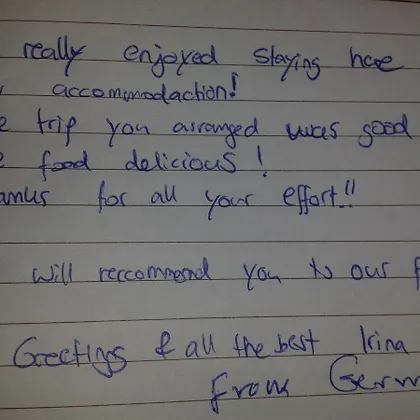 really enjoyed staying here
accommodaction!
trip you arranged was good
food delicious!
for all your effort!!
will reccommend you to our
Greetings & all the best Irina
From Germ